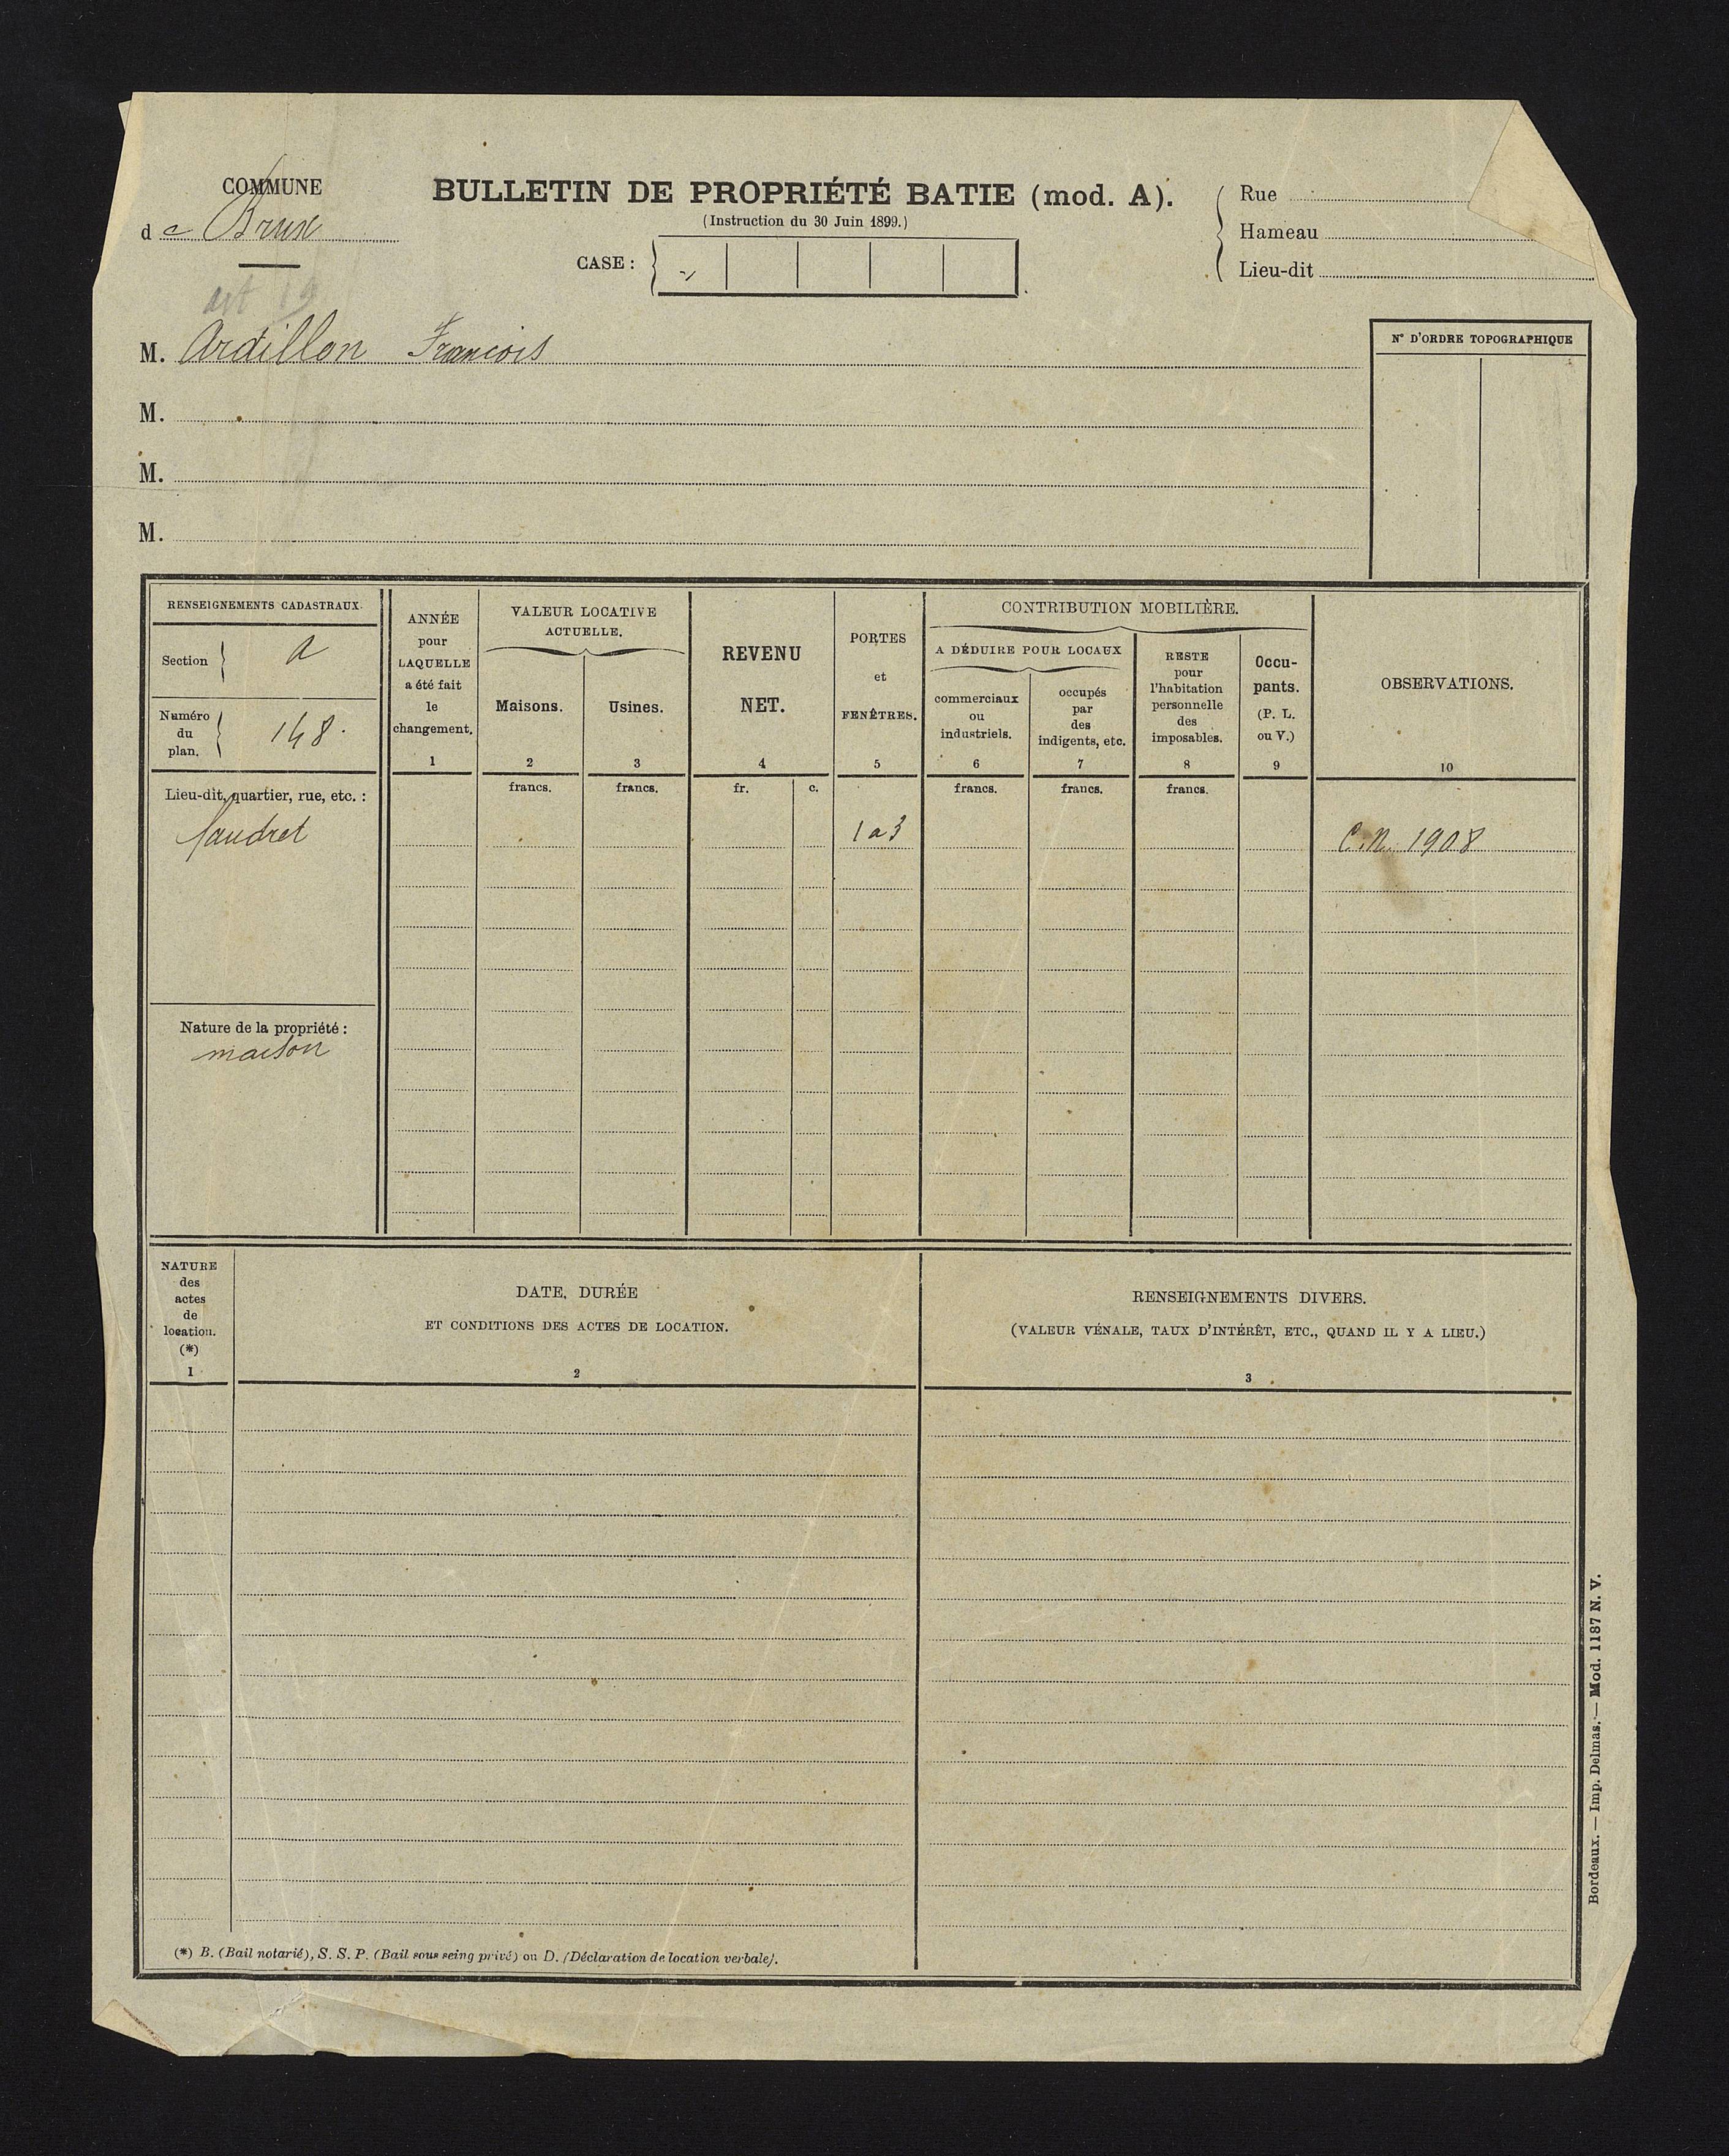 COMMUNE
de Brux
BULLETIN DE PROPRIÉTÉ BATIE (mod. A).
(Instruction du 30 Juin 1899.)
CASE :
Rue
Hameau
Lieu-dit
art 19
M. Ardillon François
M.
M.
M.
N° D'ORDRE TOPOGRAPHIQUE
RENSEIGNEMENTS CADASTRAUX.
Section A
Numéro du plan. 148.
Lieu-dit, quartier, rue, etc. :
Nature de la propriété :
maison
ANNÉE
pour
LAQUELLE
a été fait
le
changement.
1
VALEUR LOCATIVE
ACTUELLE.
Maisons.
2
francs.
Usines.
3
francs.
REVENU
NET.
4
fr. c.
PORTES
et
FENÊTRES.
5
1 a 3
CONTRIBUTION MOBILIÈRE.
A DÉDUIRE POUR LOCAUX
commerciaux
ou
industriels.
6
francs.
occupés
par
des
indigents, etc.
7
francs.
RESTE
pour
l'habitation
personnelle
des
imposables.
8
francs.
Occu-
pants.
(P. L.
ou V.)
9
OBSERVATIONS.
10
C.N. 1908
NATURE
des
actes
de
location.
(*)
1
DATE, DURÉE
ET CONDITIONS DES ACTES DE LOCATION.
2
RENSEIGNEMENTS DIVERS.
(VALEUR VÉNALE, TAUX D'INTÉRÊT, ETC., QUAND IL Y A LIEU.)
3
(*) B. (Bail notarié), S. S. P. (Bail sous seing privé) ou D. (Déclaration de location verbale).
Bordeaux. — Imp. Delmas. — Mod. 1187 N. V.